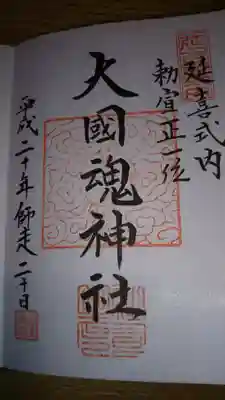 延喜式内
勅宣正一位
大國魂神社
平成二十年師走二十日